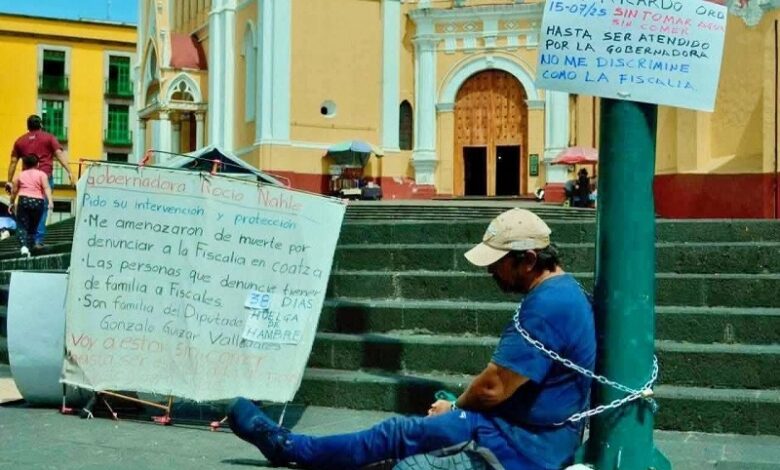 Gobernadora Rocío Nahle
Pido su intervención y protección
• Me amenazaron de muerte por
denunciar a la Fiscalia en coatza
• Las personas que denuncie
de familia a Fiscales.
• Son familia del Diputado
Gonzalo Guizar Valladares
38 DIAS
HUELGA
DE
HAMBRE
Voy a estar sin comer
hasta ser
RICARDO ORO
15-07/25 SIN TOMAR AGUA
SIN COMER
HASTA SER ATENDIDO
POR LA GOBERNADORA
NO ME DISCRIMINE
COMO LA FISCALIA